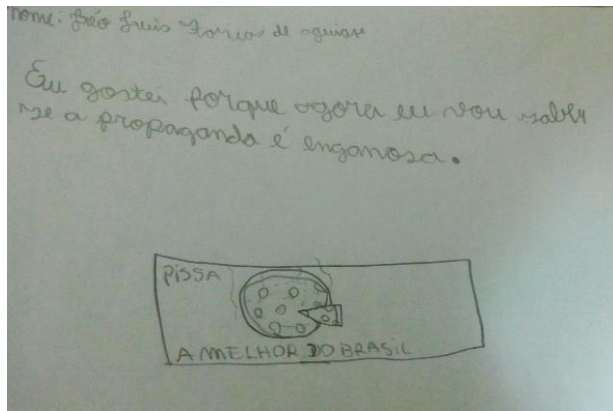 nome: Luis de Aguiar
Eu gostei porque agora eu vou saber
se a propaganda é enganosa.
PISSA
A MELHOR DO BRASIL